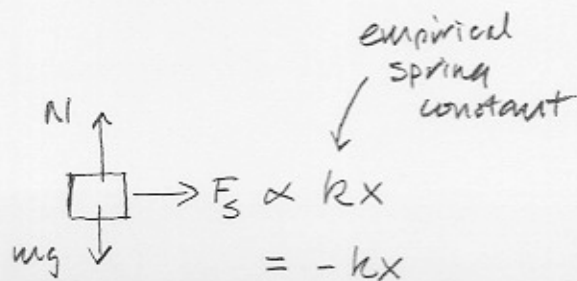 empirical
spring
constant
N
F_s ∝ kx
mg
= -kx